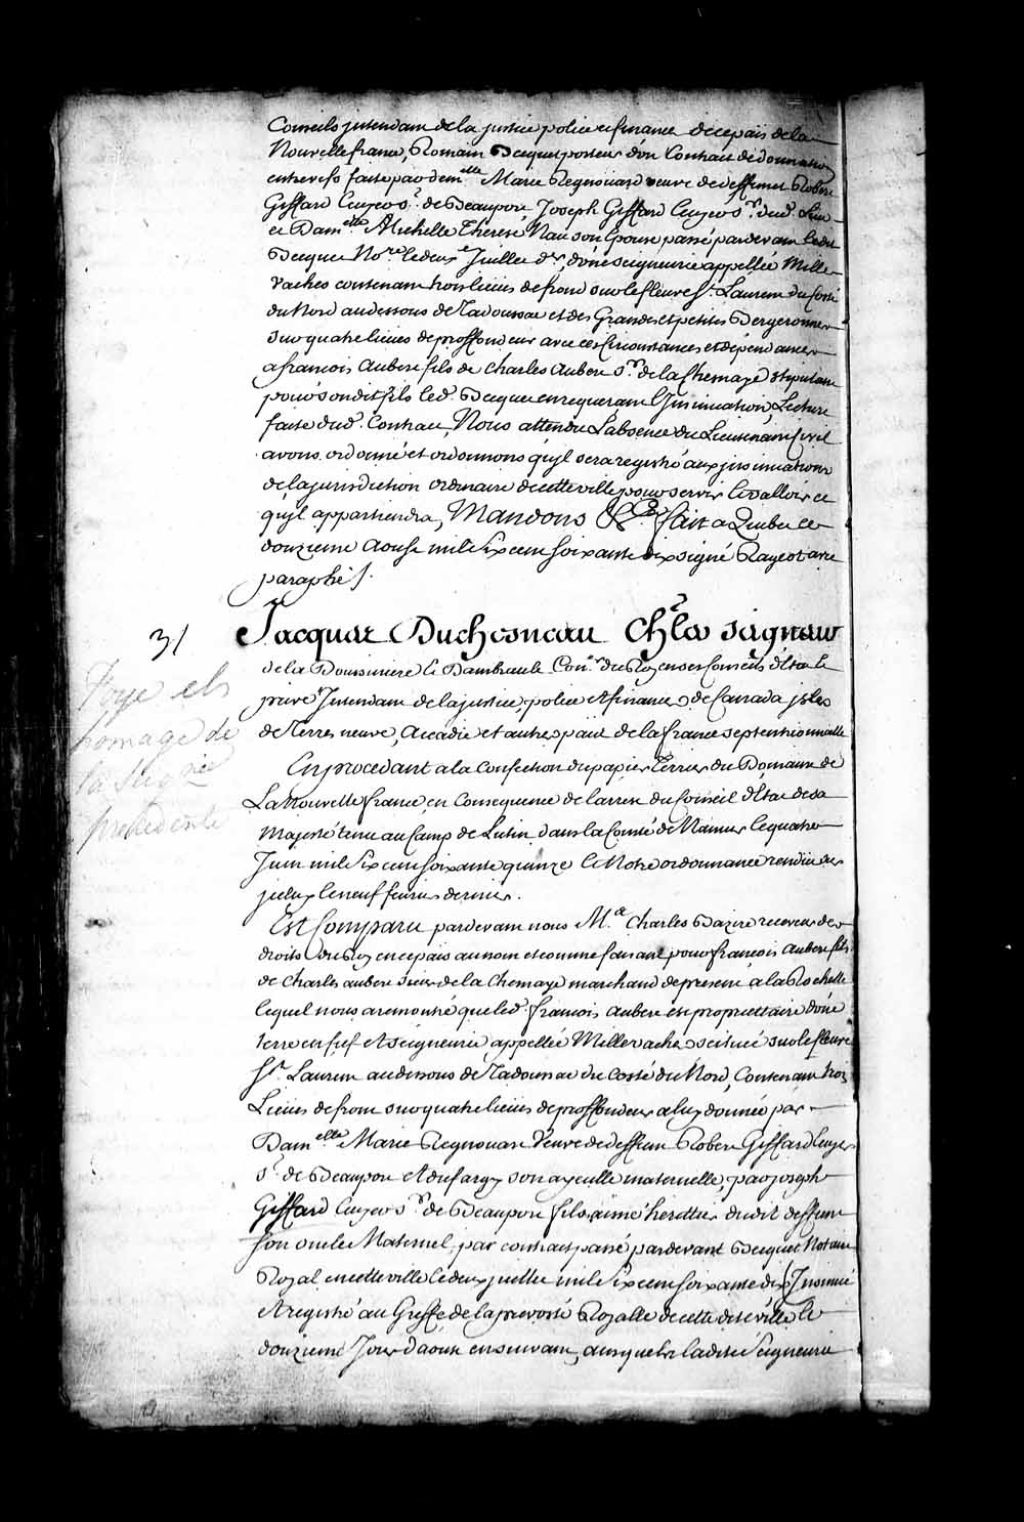 Conseils jntendant de la justice police et finance de ce païs de la
Nouvelle france, Romain Becquet porteur d'un Contract de donnation
entre vifs faite par dem.elle Marie Regnouard veuve de deffunct Robert
Giffard Escuyer s.r de Beauport Joseph Giffard Escuyer s.r dud. Lieu
et Dam.elle Michelle Therese Nau son Epouse passé pardevant ledit
Becquet No.re le deux.e Juillet d.er, d'une seigneurie appellée Mille
vaches contenant trois lieües de front sur le fleuve S.t Laurent du Costé
du Nord au dessous de Tadoussac et des Grandes et petites Bergeronnes
sur quatre lieües de proffondeur avec ses Circonstances et dépendances
a francois Aubert fils de Charles Aubert s.r de la Chesnaye stipulant
pour sondit fils led. Becquet en requerant l'Jnsinuation, Lecture
faite dud. Contract, Nous attendu L'absence du Lieutenant Civil
avons ordonné et ordonnons qu'jl sera registré aux jnsinuations
de la jurisdiction ordinaire de cette ville pour servir et valloir ce
qu'jl appartiendra, Mandons &.c fait a Quebec le
douzieme Aoust mil six cent soixante dix signé Rageot avec
paraphe /.
31
Jacques Duchesneau Ch.ler seigneur
de la Doussiniere et Dambrault Con.er du Roy en ses Conseils d'Estat et
privé Jntendant de la justice, police et finances de Canada jsles
de Terre neuve, Acadie et autres païs de la france septentrionnalle
foye et
homage de
la sieg.rie
precedente
En procedant a la Confection du papier Terrier du Domaine de
La Nouvelle france, en Consequence de l'arrest du Conseil d'Estat de sa
Majesté tenu au Camp de Lutin dans la Comté de Namur le quatre
Juin mil six cent soixante quinze et Notre ordonnance rendüe sur
jceluy le neuf feurier dernier.
Est Comparu pardevant nous M.e Charles Bazire receveur des
droits du Roy en ce païs au nom et comme faisant pour francois Aubert fils
de Charles aubert sieur de la Chesnaye marchand de present a la Rochelle
lequel nous a remontré que led. francois Aubert est proprietaire d'une
terre en fief et seigneurie appellée Millevaches scituée sur le fleuve
S.t Laurent au dessous de Tadoussac du Costé du Nord, Contenant trois
Lieües de front sur quatre lieües de proffondeur a luy donnée par
Dam.elle Marie Regnouard Veuve de deffunt Robert Giffard Escuyer
s.r de Beauport et du fargy son ayeulle maternelle, par joseph
Giffard Escuyer s.r de Beauport fils aisné heretier dudit deffunt
son oncle Maternel, par contract passé pardevant Becquet Notaire
Royal en cette ville le deux juillet mil six cent soixante dix Jnsinué
et registré au Greffe de la prevosté Royalle de cette dite ville le
douzieme Jour d'aoust ensuivant, ausquels ladite Seigneurie